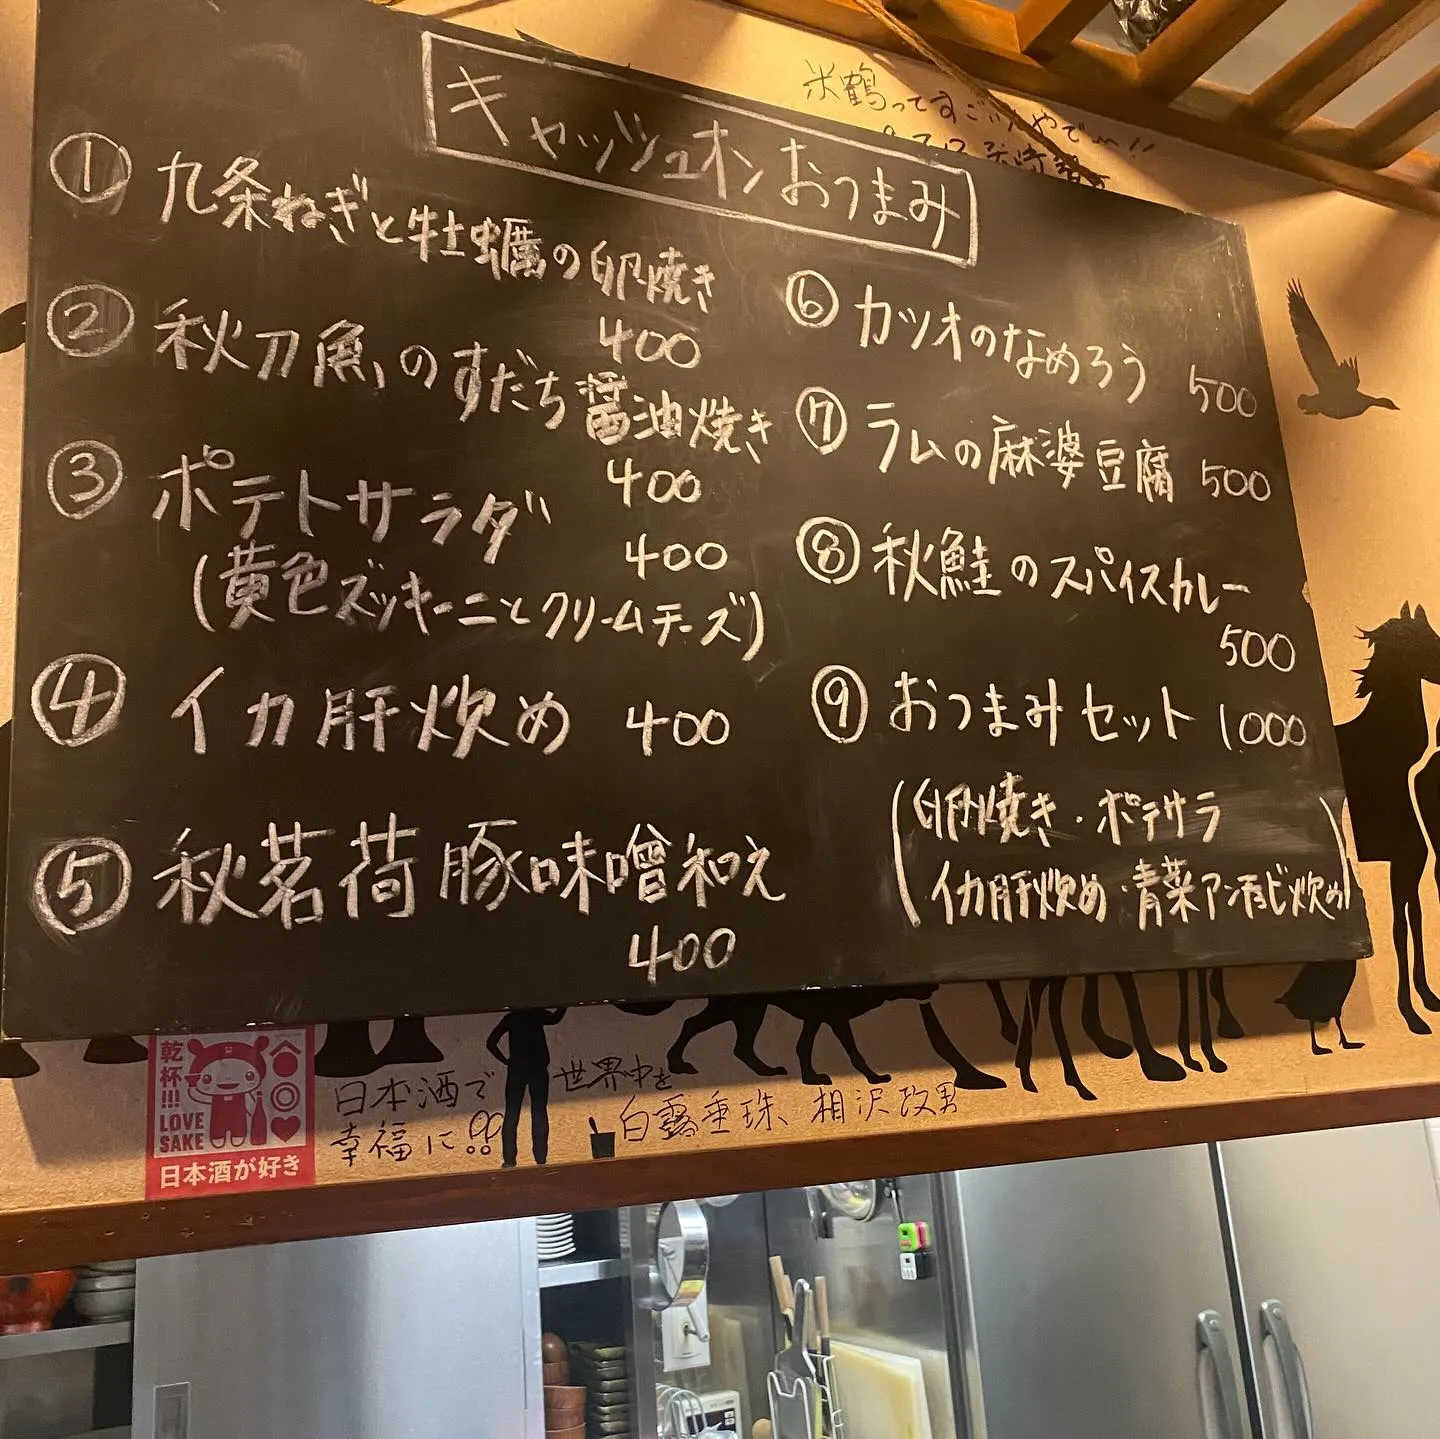 キャッシュオンおつまみ
① 九条ねぎと牡蠣の卵焼き
400
② 秋刀魚のすだち醤油焼き
400
③ ポテトサラダ
400
(黄色ズッキーニとクリームチーズ)
④ イカ肝炊め 400
⑤ 秋茗荷豚味噌和え
400
⑥ カツオのなめろう 500
⑦ ラムの麻婆豆腐 500
⑧ 秋鮭のスパイスカレー
500
⑨ おつまみセット 1000
(卵焼き・ポテサラ
イカ肝炊め・青菜アンチョビ炊め)
米鶴ってすごいんやで〜!!
乾杯!!!
LOVE
SAKE
日本酒が好き
日本酒で世界中を
幸福に!!
白露垂珠 相沢政男